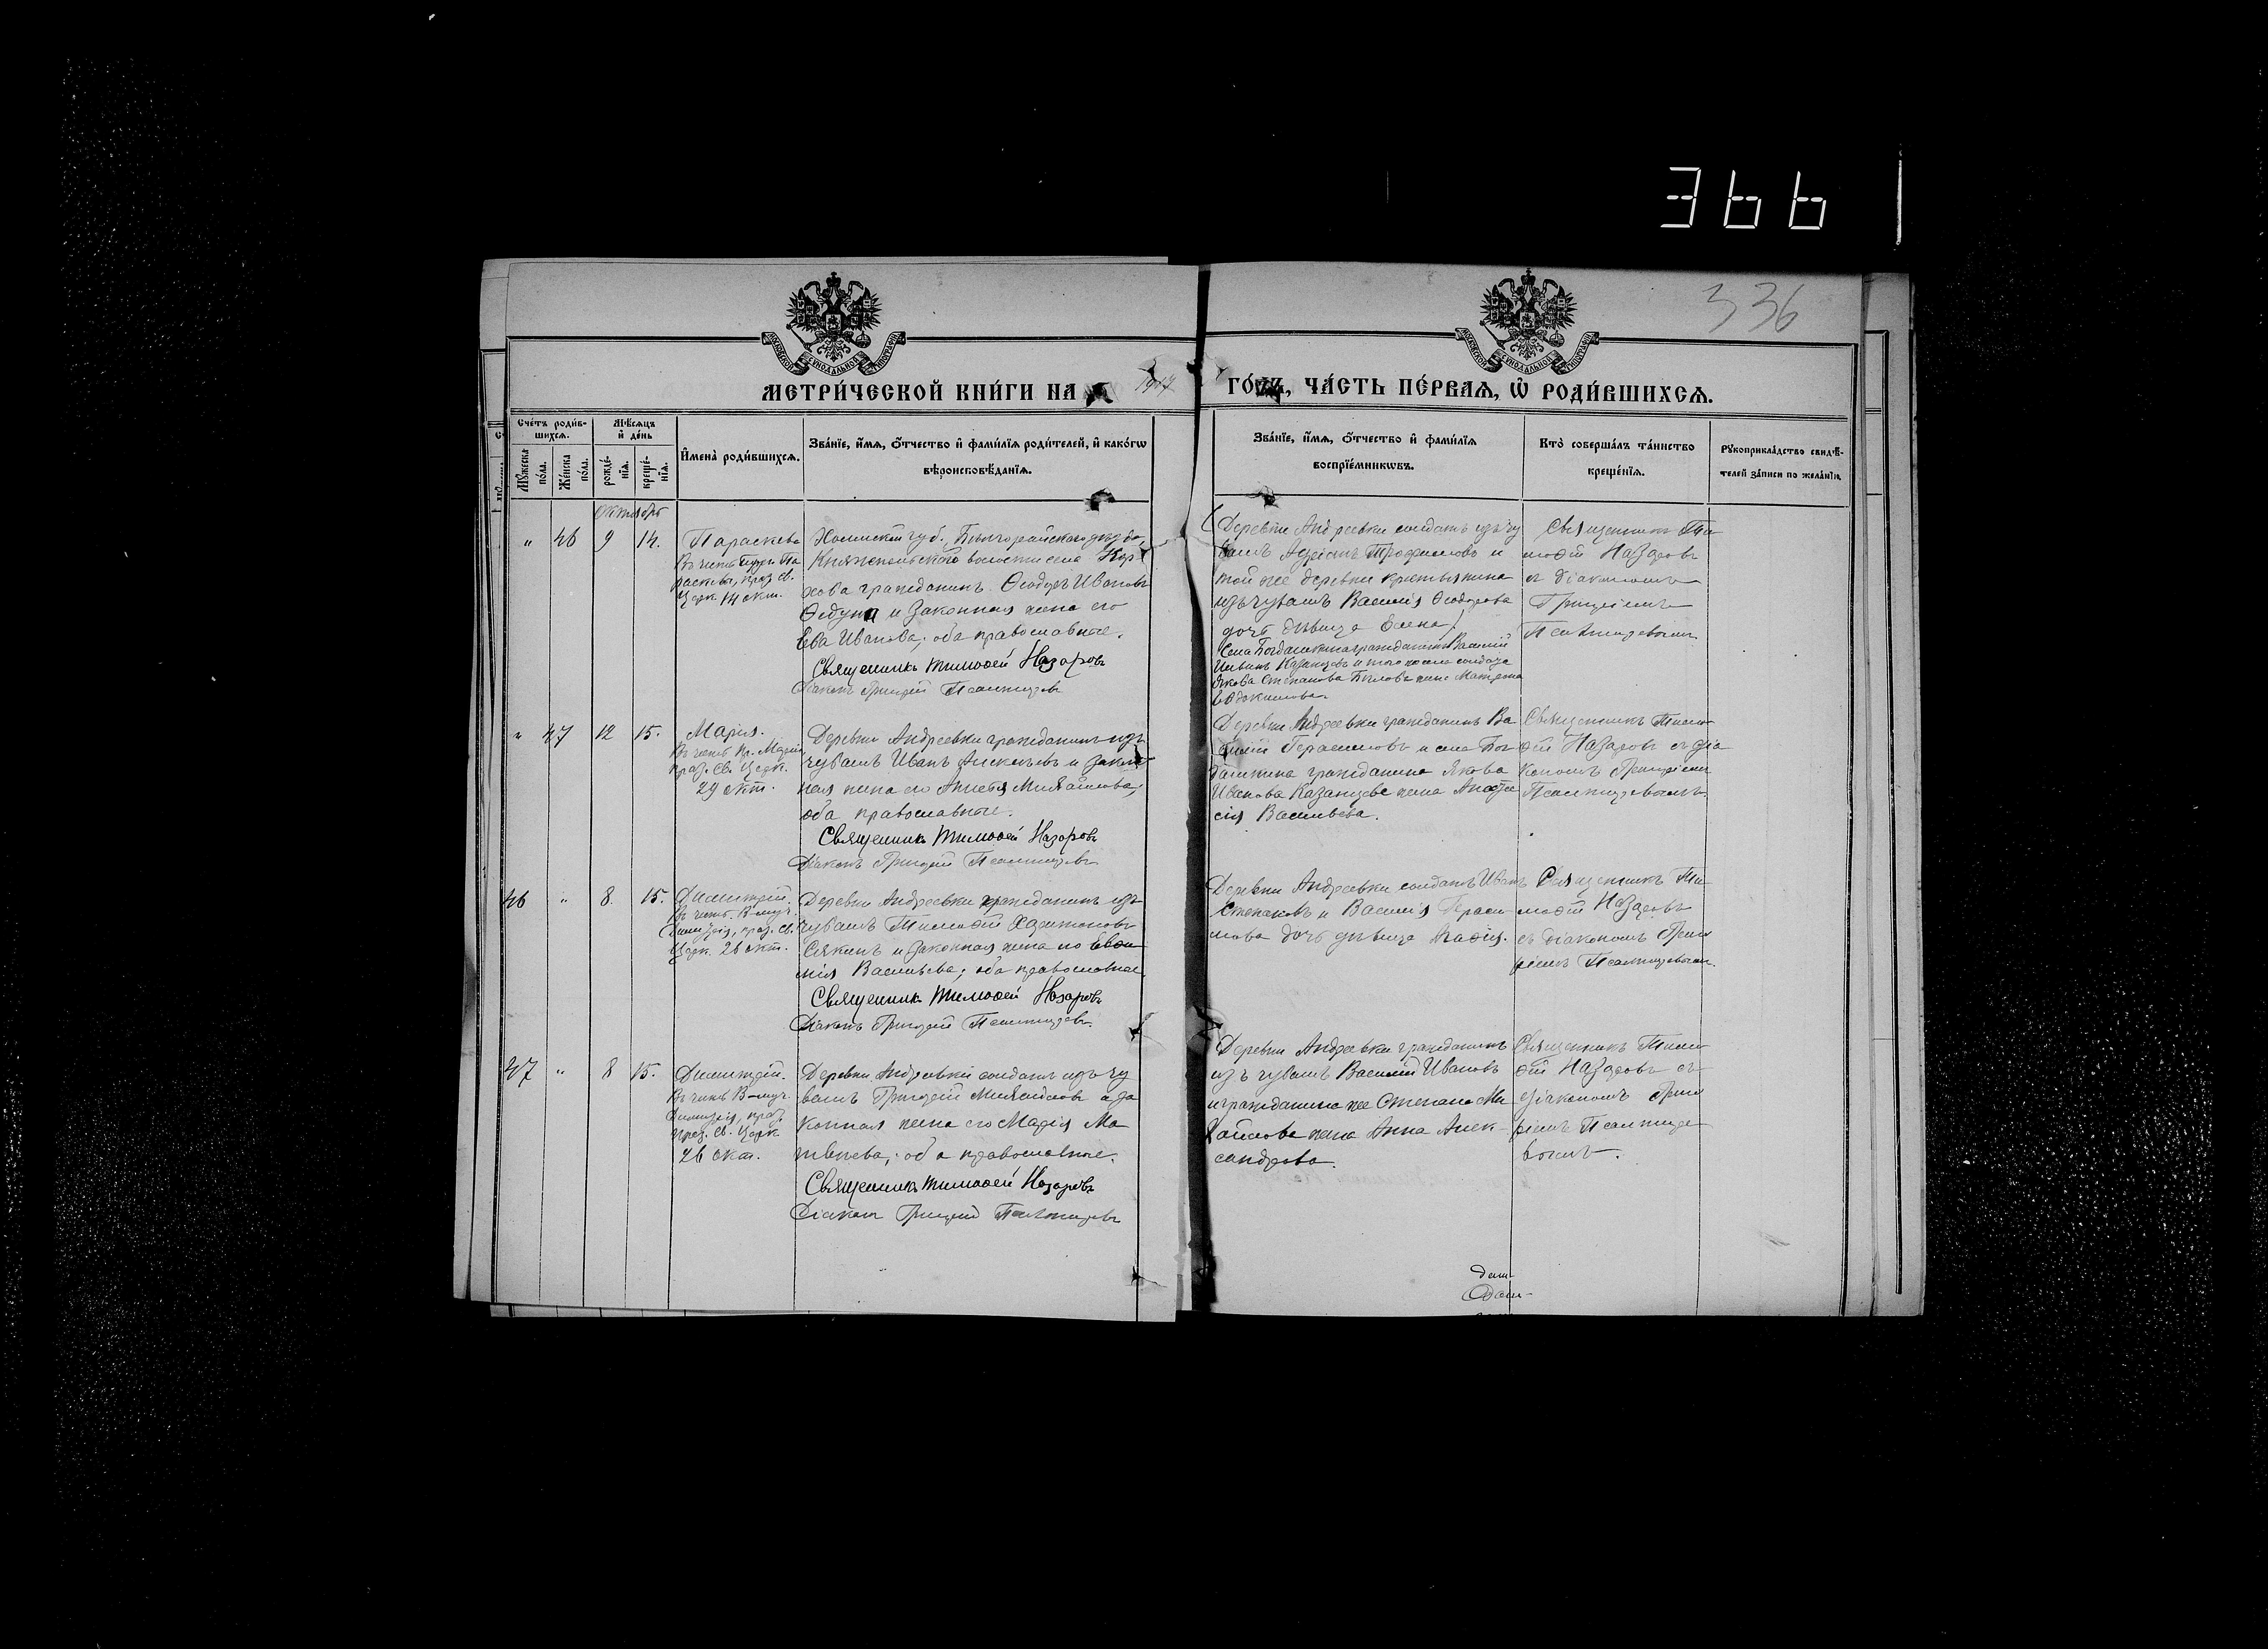 366
336
МОСКОВСКОЙ СѴНОДАЛЬНОЙ ТИПОГРАФІИ
МОСКОВСКОЙ СѴНОДАЛЬНОЙ ТИПОГРАФІИ
МЕТРИ́ЧЕСКОЙ КНИ́ГИ НА 1917 ГО́ДЪ, ЧА́СТЬ ПЕ́РВАѦ, Ѡ҆ РОДИ́ВШИХСѦ.
Сче́тъ роди́в-
шихсѧ.
Мѹ́жеска по́ла.
Же́нска по́ла.
Мѣ́сѧцъ
и҆ де́нь
рожде́-
нїѧ.
креще́-
нїѧ.
И҆мена̀ роди́вшихсѧ.
Зва́нїе, и҆́мѧ, ѻ҆́тчество и҆ фами́лїѧ роди́телей, и҆ како́гѡ
вѣроисповѣ́данїѧ.
Зва́нїе, и҆́мѧ, ѻ҆́тчество и҆ фами́лїѧ
воспрїе́мникѡвъ.
Кто̀ соверша́лъ та́инство
креще́нїѧ.
Рѹкоприкла́дство свидѣ́-
телей за́писи по жела́нїю.
Октябрь
" 46 9 14.
Параскева
Въ честь Па
раскевы, праз. св.
Церк. 14 окт.
Холмской губ., Бѣлгорайскаго уѣзда,
Княжпольской волости села Кор
хова гражданинъ Ѳеодоръ Ивановъ
Федуна и законная жена его
Ева Иванова; оба православные.
Священникъ Тимоѳей Назаровъ
Діаконъ Григорій Псалтыревъ
Деревни Андреевки солдатъ изъ чу
вашъ Адріанъ Трофимовъ и
той же деревни крестьянина
изъ чувашъ Василія Ѳеодорова
дочь дѣвица Елена)
Села Богдашкина гражданинъ Василій
Казанцевъ и того же села солдата
Якова Степанова Бѣлова жена Матрона
Евдокимова.
Священникъ Ти
моѳей Назаровъ
съ діакономъ
Григоріемъ
Псалтыревымъ
" 47 12 15.
Марія.
Въ честь Пр. Маріи,
праз. св. Церк.
29 окт.
Деревни Андреевки гражданинъ изъ
чувашъ Иванъ Алексѣевъ и закон
ная жена его Михайлова;
оба православные.
Священникъ Тимоѳей Назаровъ
Діаконъ Григорій Псалтыревъ
Деревни Андреевки гражданинъ Ва
силій Герасимовъ и села Бог
дашкина гражданина Якова
Иванова Казанцева жена Анаста
сія Васильева.
Священникъ Тимо
ѳей Назаровъ съ діа
кономъ Григоріемъ
Псалтыревымъ.
46 " 8. 15.
Димитрій.
Въ честь В-муч.
Димитрія, праз. св.
Церк. 26 окт.
Деревни Андреевки гражданинъ изъ
чувашъ Тимоѳей Харитоновъ
Сякинъ и законная жена его Евѳи
мія Васильева; оба православные
Священникъ Тимоѳей Назаровъ
Діаконъ Григорій Псалтыревъ.
Деревни Андреевки солдатъ Иванъ
Степановъ и Василія Гераси
мова дочь дѣвица
Священникъ Ти
моѳей Назаровъ
съ діакономъ Григо
ріемъ Псалтыревымъ.
47 " 8 15.
Димитрій.
Въ честь В-муч.
Димитрія, праз
праз. св. Церк
26 окт.
Деревни Андреевки солдатъ изъ чу
вашъ Григорій Михайловъ и за
конная жена его Марія Ма
твѣева; оба православные.
Священникъ Тимоѳей Назаровъ
Діаконъ Григорій Псалтыревъ
Деревни Андреевки гражданинъ
изъ чувашъ Василій Ивановъ
и гражданина же Степана Ми
хайлова жена Анна Алек-
сандрова.
Священникъ Тимо
ѳей Назаровъ съ
діакономъ Григо
ріемъ Псалтыре
вымъ.